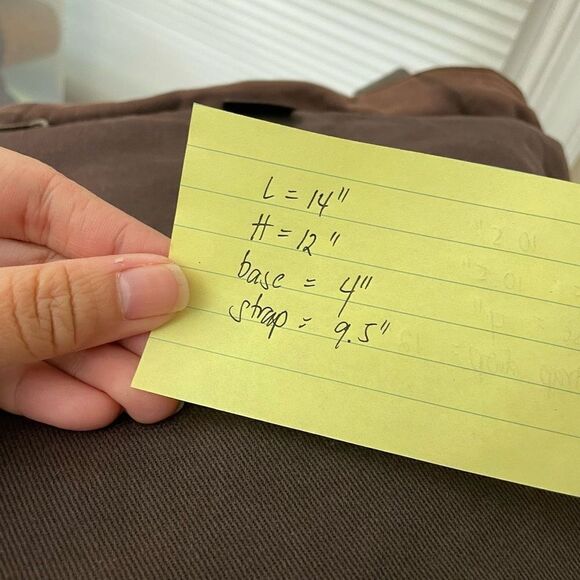 L = 14"
H = 12"
base = 4"
strap = 9.5"